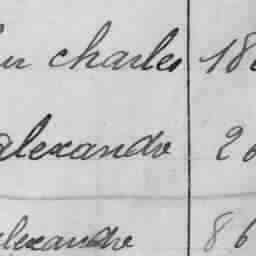 charles 18
alexandre 26
alexandre 86